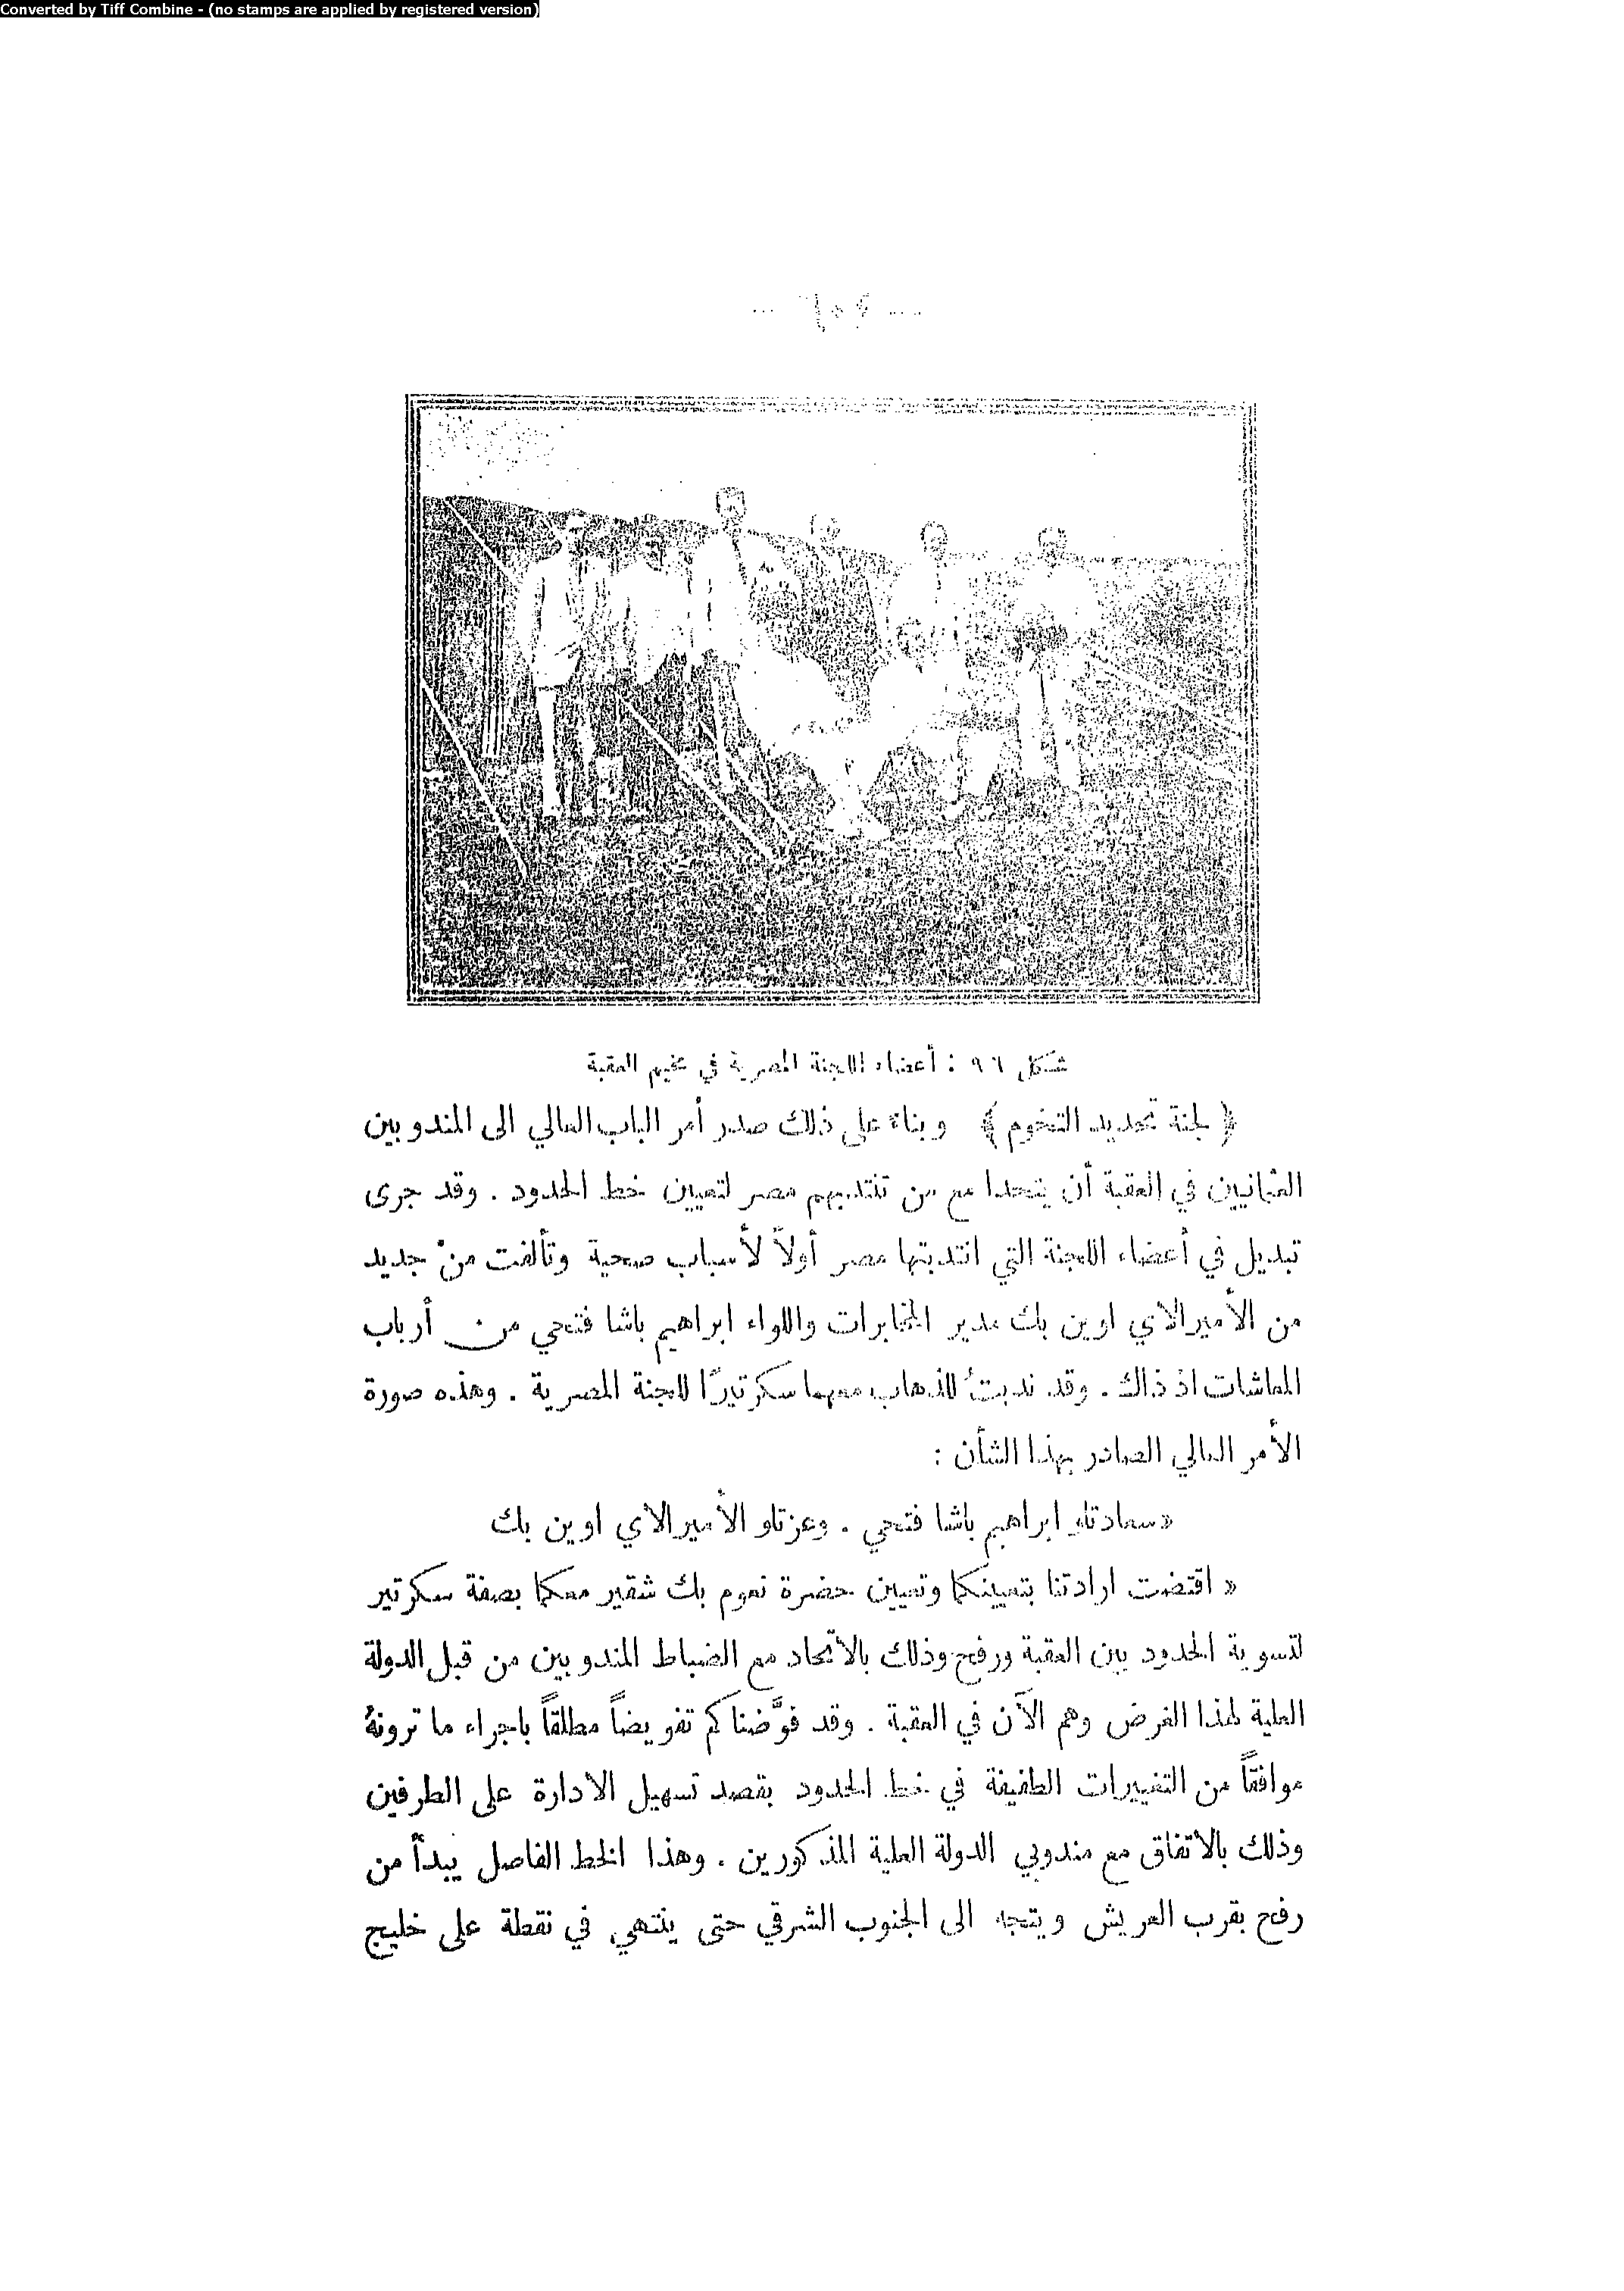 Converted by Tiff Combine - (no stamps are applied by registered version)
شكل ٩٦ : أعضاء اللجنة المصرية في مخيم العقبة
﴿ لجنة تحديد التخوم ﴾ وبناءً على ذلك صدر أمر الباب العالي الى المندوبين
العثمانيين في العقبة أن يتحدا مع من تنتدبهم مصر لتعيين خط الحدود . وقد جرى
تبديل في أعضاء اللجنة التي انتدبتها مصر أولاً لأسباب صحية وتألفت من جديد
من الأميرالاي اوين بك مدير المخابرات واللواء ابراهيم باشا فتحي من أرباب
المعاشات اذ ذاك . وقد ندبتُ للذهاب معهما سكرتيرًا للجنة المصرية . وهذه صورة
الأمر العالي الصادر بهذا الشأن :
« سعادتلو ابراهيم باشا فتحي . وعزتلو الأميرالاي اوين بك
« اقتضت ارادتنا بتعيينكما وتعيين حضرة نعوم بك شقير معكما بصفة سكرتير
لتسوية الحدود بين العقبة ورفح وذلك بالاتحاد مع الضباط المندوبين من قبل الدولة
العلية لهذا الغرض وهم الآن في العقبة . وقد فوَّضناكم تفويضاً مطلقاً باجراء ما ترونهُ
موافقاً من التغييرات الطفيفة في خط الحدود بقصد تسهيل الادارة على الطرفين
وذلك بالاتفاق مع مندوبي الدولة العلية المذكورين . وهذا الخط الفاصل يبدأ من
رفح بقرب العريش ويتجه الى الجنوب الشرقي حتى ينتهي في نقطة على خليج